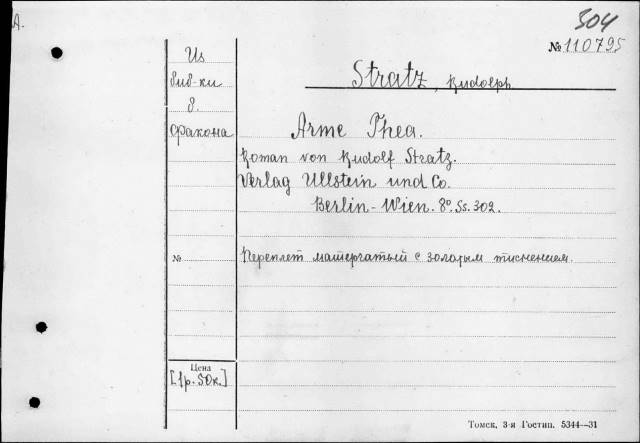 A.
304
№ 110795
Из
биб-ки
б.
Фракона
Stratz, Rudolph
Arme Thea.
Roman von Rudolf Stratz.
Verlag Ullstein und Co.
Berlin-Wien. 8º. Ss. 302.
№
Переплет матерчатый с золотым тиснением.
Цена
[1р. 50к.]
Томск, 3-я Гостип. 5344—31